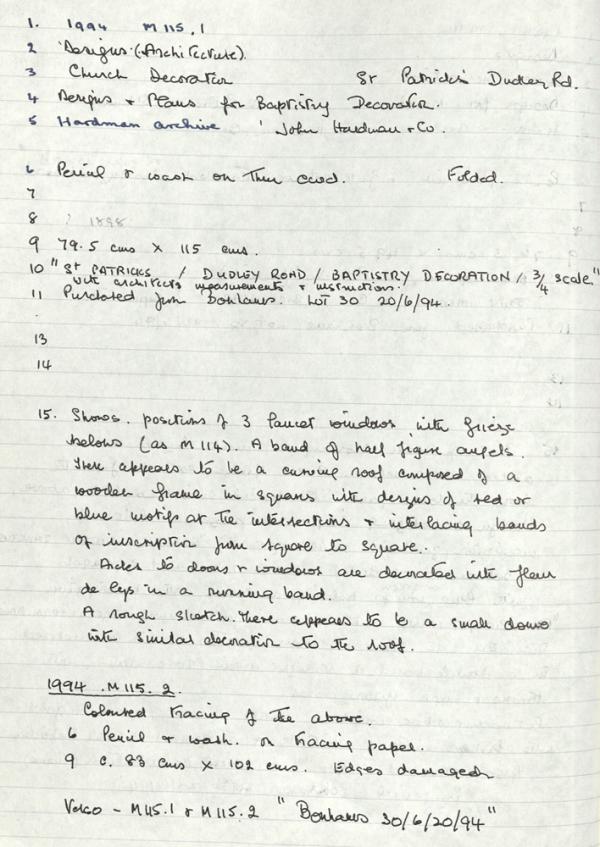 1. 1994 M 115.1
2 Designs (Architecture).
3 Church Decoration St Patricks Dudley Rd.
4 Designs + Plans for Baptistry Decoration.
5 Hardman archive John Hardman + Co.
6 Pencil & wash on thin card. Folded.
7
8 ? 1898
9 79.5 cms X 115 cms.
10 "St PATRICKS / DUDLEY ROAD / BAPTISTRY DECORATION / 3/4 scale"
with architects measurements + instructions.
11 Purchased from Bonhams. LOT 30 20/6/94.
13
14
15. Shows positions of 3 lancet windows with frieze
below (as M 114). A band of half figure angels.
There appears to be a curving roof composed of a
wooden frame in squares with designs of red or
blue motifs at the intersections + interlacing bands
of inscription from square to square.
Arches to doors + windows are decorated with fleur
de lys in a running band.
A rough sketch. There appears to be a small dome
with similar decoration to the roof.
1994. M 115. 2
Coloured tracing of the above.
6 Pencil & wash. on tracing paper.
9 c. 83 cms X 102 cms. Edges damaged
Verso - M115.1 & M115.2 "Bonhams 30/6/20/94"